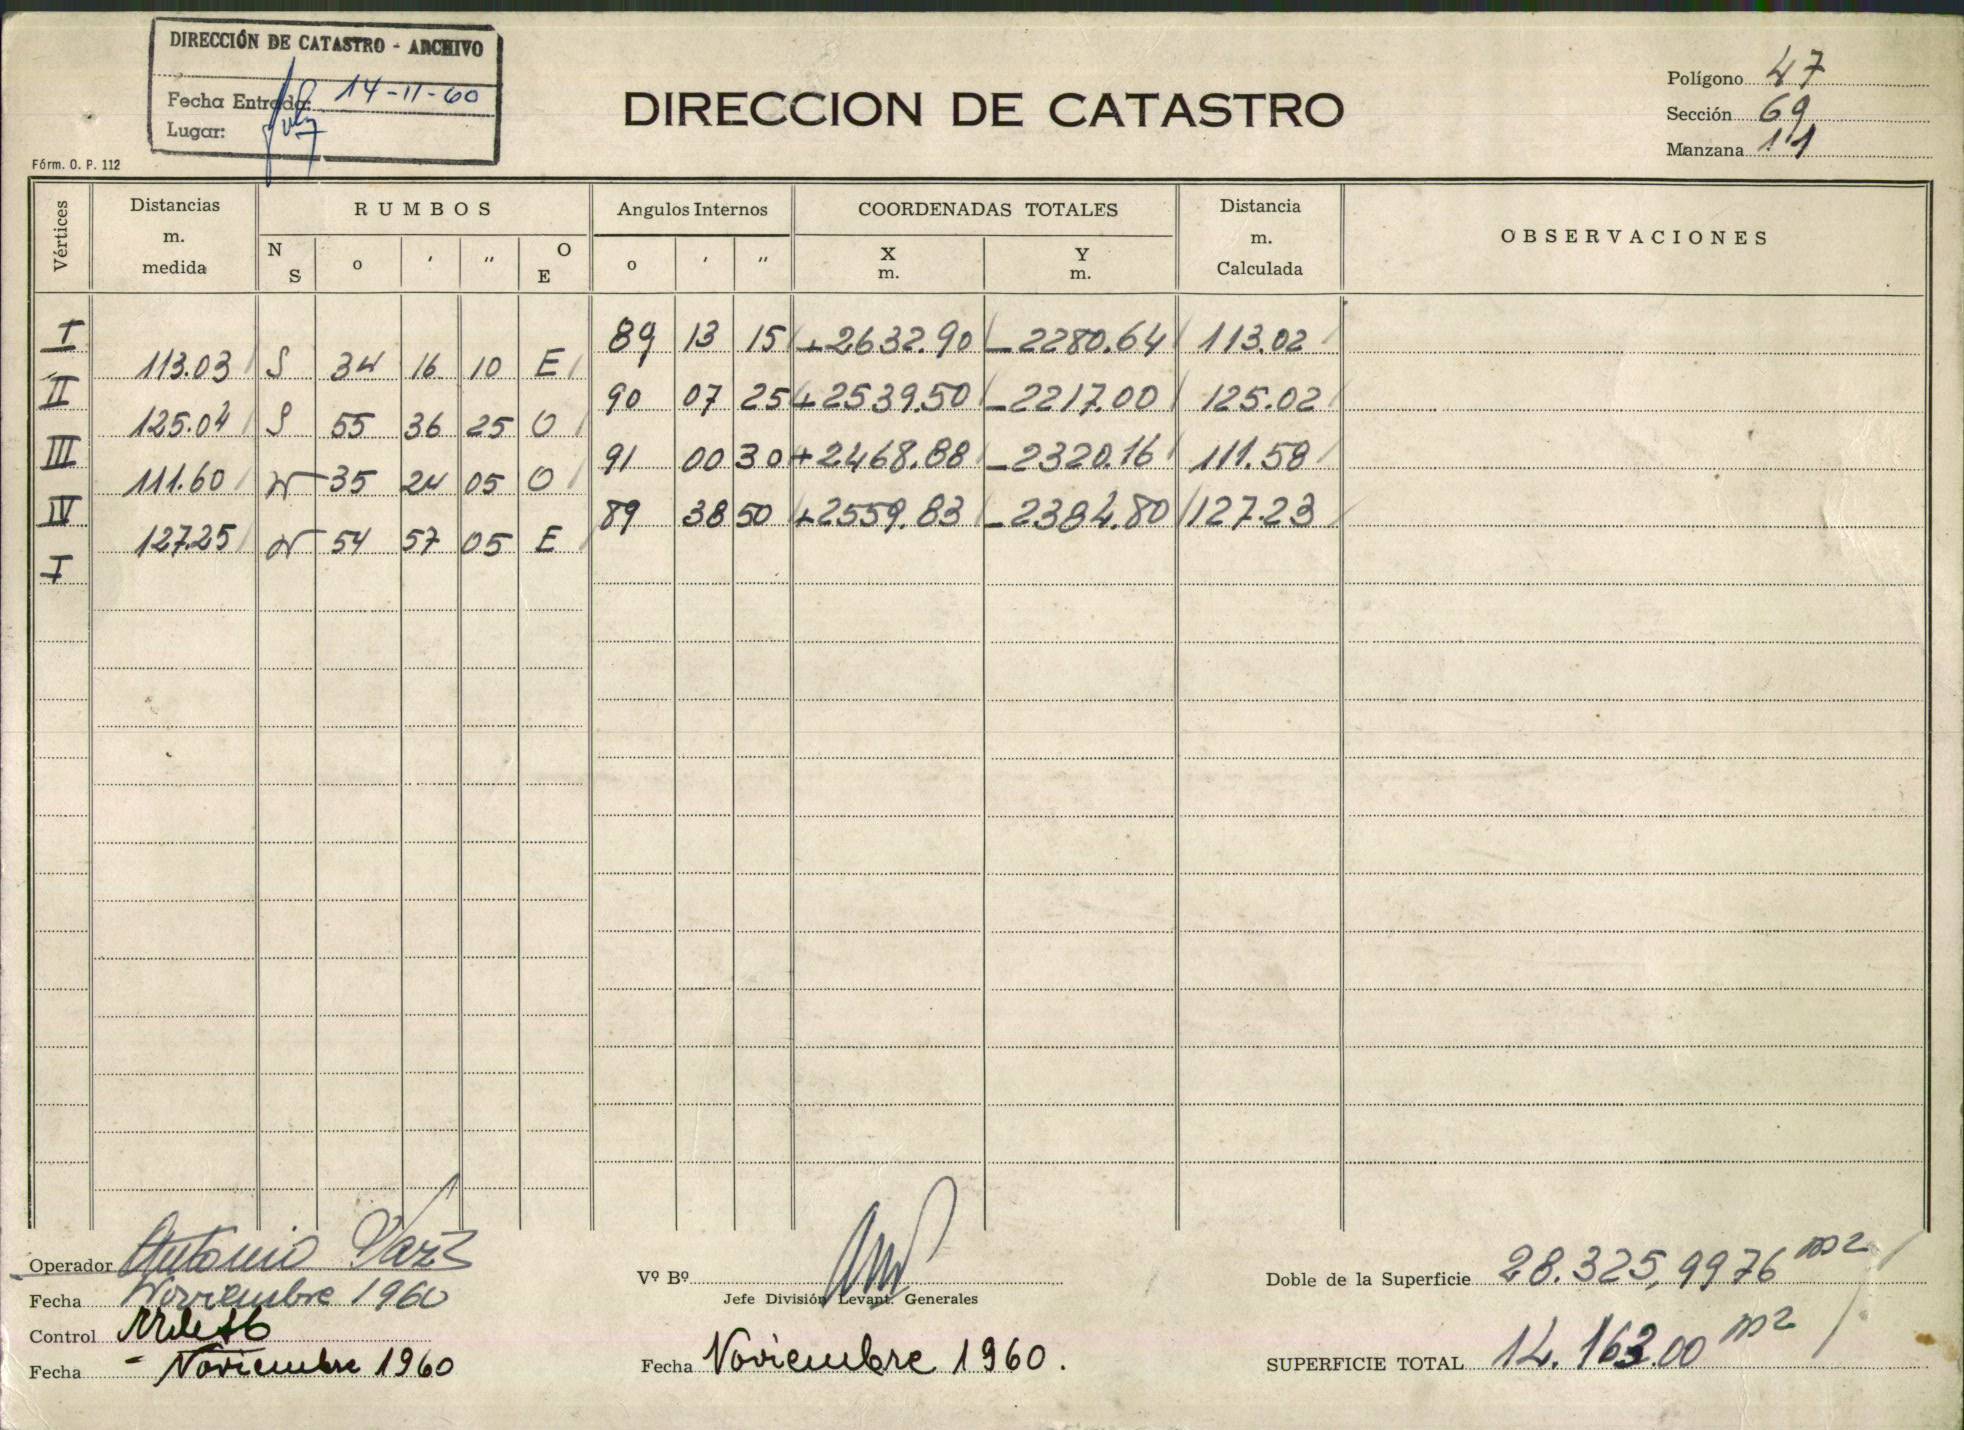 DIRECCIÓN DE CATASTRO - ARCHIVO
Fecha Entrada: 14-11-60
Lugar:
Fórm. O. P. 112
DIRECCION DE CATASTRO
Polígono 47
Sección 69
Manzana 11
Vértices Distancias m. medida RUMBOS Angulos Internos COORDENADAS TOTALES Distancia m. Calculada OBSERVACIONES
N S o ' " O E o ' " X m. Y m.
I 89 13 15 +2632.90 -2280.64 113.02
113.03 S 34 16 10 E
II 90 07 25 +2539.50 -2217.00 125.02
125.04 S 55 36 25 O
III 91 00 30 +2468.88 -2320.16 111.58
111.60 N 35 24 05 O
IV 89 38 50 +2559.83 -2384.80 127.23
127.25 N 54 57 05 E
I
Operador Antonio
Fecha Noviembre 1960
Control
Fecha - Noviembre 1960
Vº Bº
Jefe División Levant. Generales
Fecha Noviembre 1960.
Doble de la Superficie 28.325,9976 m2
SUPERFICIE TOTAL 14.163.00 m2